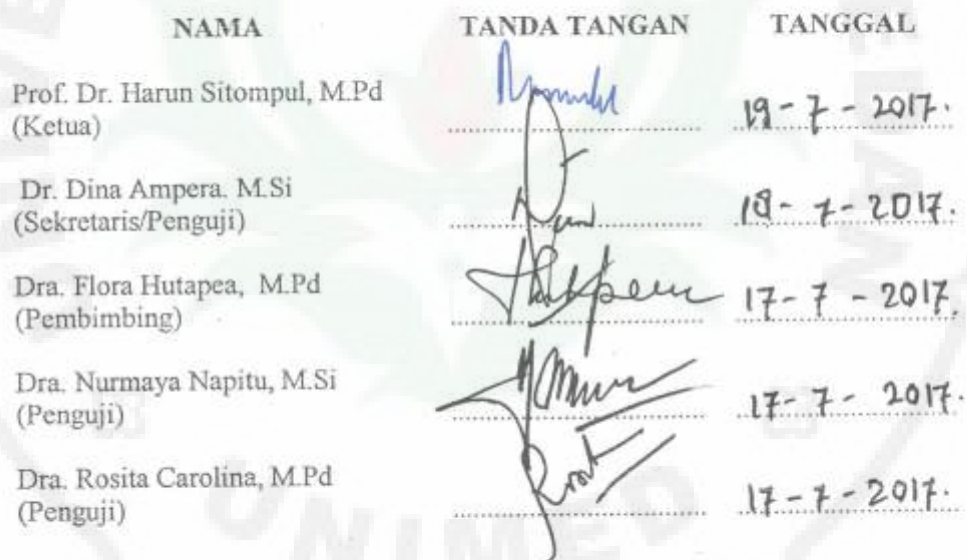 NAMA TANDA TANGAN TANGGAL
Prof. Dr. Harun Sitompul, M.Pd
(Ketua) 19 - 7 - 2017.
Dr. Dina Ampera. M.Si
(Sekretaris/Penguji) 18 - 7 - 2017.
Dra. Flora Hutapea, M.Pd
(Pembimbing) 17 - 7 - 2017.
Dra. Nurmaya Napitu, M.Si
(Penguji) 17 - 7 - 2017.
Dra. Rosita Carolina, M.Pd
(Penguji) 17 - 7 - 2017.
UNIMED